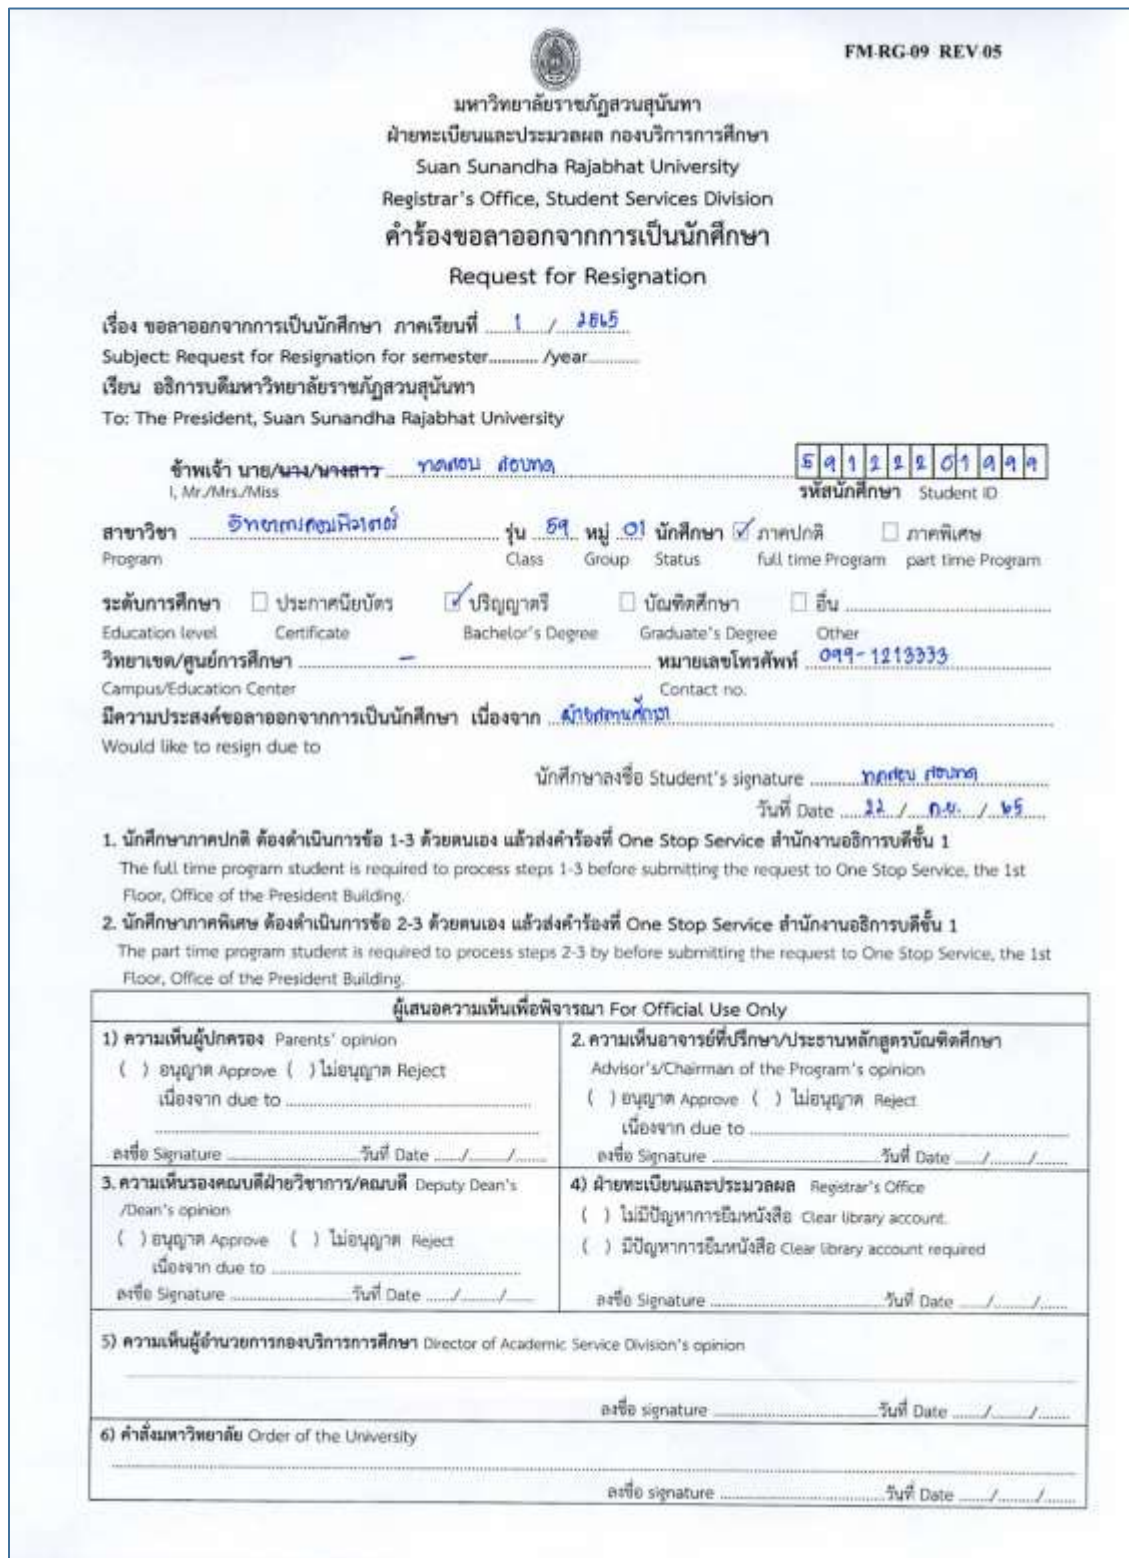 FM-RG-09 REV-05
มหาวิทยาลัยราชภัฏสวนสุนันทา
ฝ่ายทะเบียนและประมวลผล กองบริการการศึกษา
Suan Sunandha Rajabhat University
Registrar's Office, Student Services Division
คำร้องขอลาออกจากการเป็นนักศึกษา
Request for Resignation
เรื่อง ขอลาออกจากการเป็นนักศึกษา ภาคเรียนที่ 1 / 2565
Subject: Request for Resignation for semester........... /year............
เรียน อธิการบดีมหาวิทยาลัยราชภัฏสวนสุนันทา
To: The President, Suan Sunandha Rajabhat University
ข้าพเจ้า นาย/นาง/นางสาว ทดสอบ สอบทด 59122201999
I, Mr./Mrs./Miss รหัสนักศึกษา Student ID
สาขาวิชา วิทยาการคอมพิวเตอร์ รุ่น 59 หมู่ 01 นักศึกษา ☑ ภาคปกติ ☐ ภาคพิเศษ
Program Class Group Status full time Program part time Program
ระดับการศึกษา ☐ ประกาศนียบัตร ☑ ปริญญาตรี ☐ บัณฑิตศึกษา ☐ อื่น
Education level Certificate Bachelor's Degree Graduate's Degree Other
วิทยาเขต/ศูนย์การศึกษา - หมายเลขโทรศัพท์ 099-1213333
Campus/Education Center Contact no.
มีความประสงค์ขอลาออกจากการเป็นนักศึกษา เนื่องจาก ย้ายสถานศึกษา
Would like to resign due to
นักศึกษาลงชื่อ Student's signature ทดสอบ สอบทด
วันที่ Date 22 / ก.ย. / 65
1. นักศึกษาภาคปกติ ต้องดำเนินการข้อ 1-3 ด้วยตนเอง แล้วส่งคำร้องที่ One Stop Service สำนักงานอธิการบดีชั้น 1
The full time program student is required to process steps 1-3 before submitting the request to One Stop Service, the 1st
Floor, Office of the President Building.
2. นักศึกษาภาคพิเศษ ต้องดำเนินการข้อ 2-3 ด้วยตนเอง แล้วส่งคำร้องที่ One Stop Service สำนักงานอธิการบดีชั้น 1
The part time program student is required to process steps 2-3 by before submitting the request to One Stop Service, the 1st
Floor, Office of the President Building.
ผู้เสนอความเห็นเพื่อพิจารณา For Official Use Only
1) ความเห็นผู้ปกครอง Parents' opinion
( ) อนุญาต Approve ( ) ไม่อนุญาต Reject
เนื่องจาก due to
ลงชื่อ Signature วันที่ Date ....../......./.......
2. ความเห็นอาจารย์ที่ปรึกษา/ประธานหลักสูตรบัณฑิตศึกษา
Advisor's/Chairman of the Program's opinion
( ) อนุญาต Approve ( ) ไม่อนุญาต Reject
เนื่องจาก due to
ลงชื่อ Signature วันที่ Date ....../......./.......
3. ความเห็นรองคณบดีฝ่ายวิชาการ/คณบดี Deputy Dean's
/Dean's opinion
( ) อนุญาต Approve ( ) ไม่อนุญาต Reject
เนื่องจาก due to
ลงชื่อ Signature วันที่ Date ....../......./.......
4) ฝ่ายทะเบียนและประมวลผล Registrar's Office
( ) ไม่มีปัญหาการยืมหนังสือ Clear library account.
( ) มีปัญหาการยืมหนังสือ Clear library account required
ลงชื่อ Signature วันที่ Date ....../......./.......
5) ความเห็นผู้อำนวยการกองบริการการศึกษา Director of Academic Service Division's opinion
ลงชื่อ signature วันที่ Date ....../......./.......
6) คำสั่งมหาวิทยาลัย Order of the University
ลงชื่อ signature วันที่ Date ....../......./.......